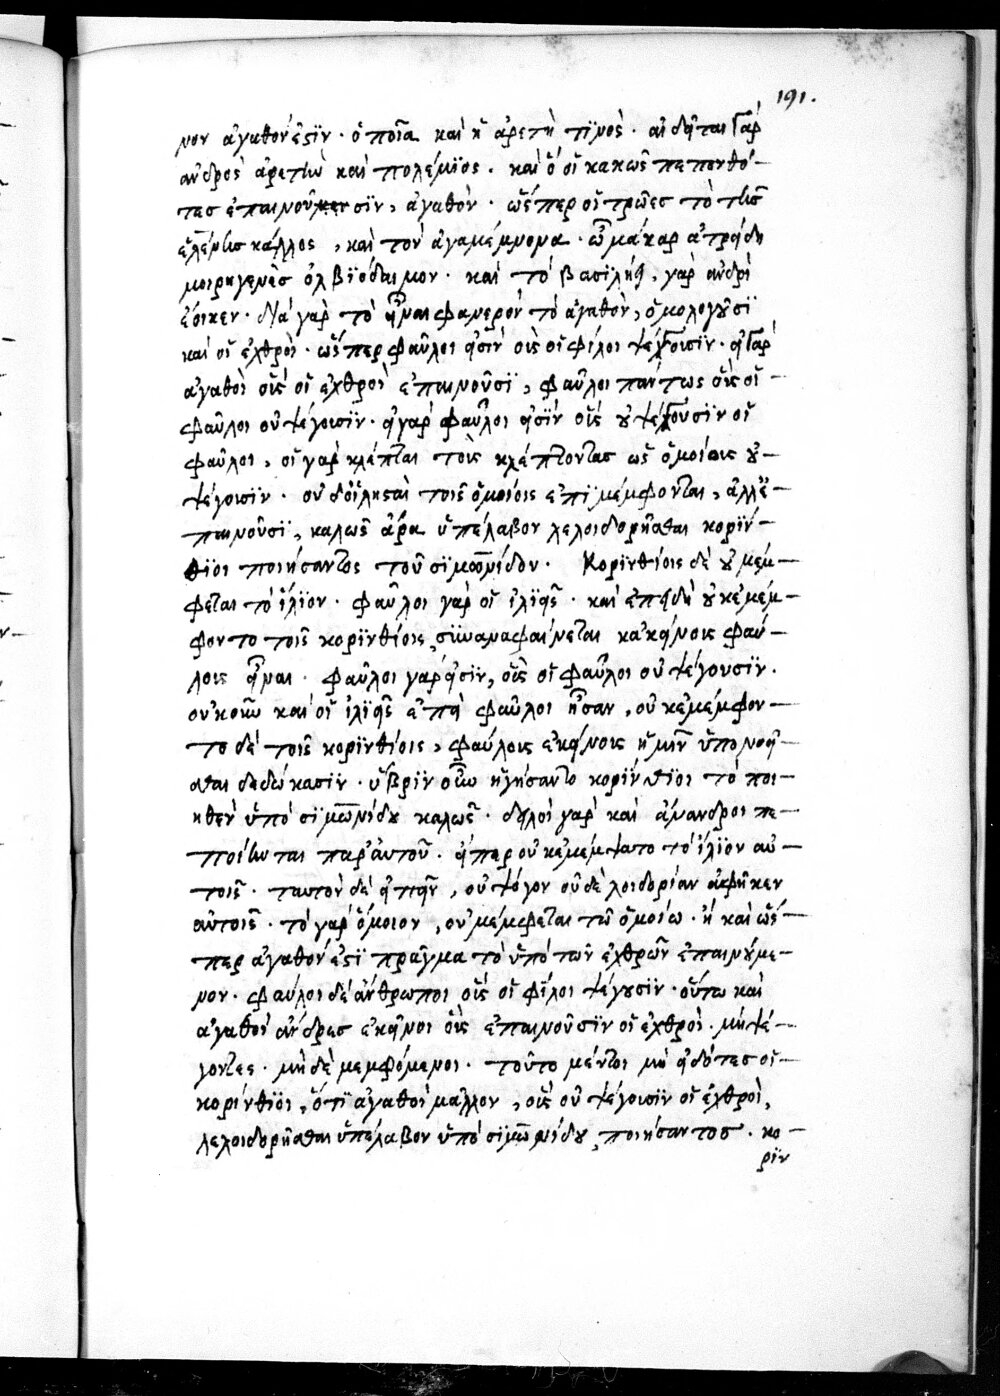 191.
νον ἀγαθόν ἐστϊν · ὁποῖα καὶ ἡ ἀρετὴ τϊνὸς · αἰδεῖται γὰρ
ἀνδρὸς ἀρετὴν καὶ πολέμϊος · καὶ ὃ οἱ κακῶς πεπονθό-
τες ἐπαινοῦσϊν, ἀγαθὸν · ὥσπερ οἱ τρῶες τὸ τῆς
ἑλένης κάλλος, καὶ τὸν ἀγαμέμνονα · ὦ μάκαρ ἀτρείδη
μοιρηγενὲς ὀλβϊόδαιμον · καὶ τὸ βασϊλῆϊ γὰρ ἀνδρὶ
ἔοικεν · διὰ γὰρ τὸ εἶναι φανερὸν τὸ ἀγαθὸν, ὁμολογοῦσϊ
καὶ οἱ ἐχθροὶ · ὥσπερ φαῦλοι εἰσὶν οἷς οἱ φίλοι ψέγουσϊν · εἰ γὰρ
ἀγαθοὶ οὓς οἱ ἐχθροὶ ἐπαινοῦσϊ, φαῦλοι πάντως οὓς οἱ
φαῦλοι οὐ ψέγουσϊν · εἰ γὰρ φαῦλοι εἰσϊν οὓς οὐ ψέγουσϊν οἱ
φαῦλοι, οἱ γὰρ κλέπται τοὺς κλέπτοντας ὡς ὁμοίους οὐ
ψέγουσϊν · οὐδ' οἱ λῃσταὶ τοῖς ὁμοίοις ἐπϊμέμφονται, ἀλλ' ἐ-
παινοῦσϊ, καλῶς ἄρα ὑπέλαβον λελοιδορῆσθαι κορίν-
θϊοι ποιήσαντος τοῦ σϊμωνίδου · Κορϊνθίοις δὲ οὐ μέμ-
φεται τὸ ἴλϊον · φαῦλοι γὰρ οἱ ἰλϊεῖς · καὶ ἐπειδὴ οὐκ ἐμέμ-
φοντο τοῖς κορϊνθίοις, συναναφαίνεται κακείνοις φαύ-
λοις εἶναι · φαῦλοι γὰρ εἰσϊν, οὓς οἱ φαῦλοι οὐ ψέγουσϊν ·
οὐκοῦν καὶ οἱ ἰλϊεῖς ἐπεὶ φαῦλοι ἦσαν, οὐκ ἐμέμφον-
το δὲ τοῖς κορϊνθίοις, φαύλους ἐκείνους ἡμῖν ὑπονοεῖ-
σθαι δεδώκασϊν · ὕβρϊν οὖν ἡγήσαντο κορίνθϊοι τὸ ποι-
ηθὲν ὑπὸ σϊμωνίδου καλῶς · δειλοὶ γὰρ καὶ ἄνανδροι πε-
ποίηνται παρ' αὐτοῦ · εἴπερ οὐκ ἐμέμψατο τὸ ἴλϊον αὐ-
τοῖς · ταυτὸν δὲ εἰπεῖν, οὐ ψόγον οὐδὲ λοιδορίαν ἀφῆκεν
αὐτοῖς · τὸ γὰρ ὅμοιον, οὐ μέμφεται τῶ ὁμοίω · ἢ καὶ ὥσ-
περ ἀγαθόν ἐστϊ πρᾶγμα τὸ ὑπὸ τῶν ἐχθρῶν ἐπαινούμε-
νον · φαῦλοι δὲ ἄνθρωποι οὓς οἱ φίλοι ψέγουσϊν · οὕτω καὶ
ἀγαθοὶ ἄνδρες ἐκεῖνοι οὓς ἐπαινοῦσϊν οἱ ἐχθροὶ · μὴ ψέ-
γοντες · μὴ δὲ μεμφόμενοι · τοῦτο μέντοι μὴ εἰδότες οἱ
κορίνθϊοι, ὅτϊ ἀγαθοὶ μᾶλλον, οὓς οὐ ψέγουσϊν οἱ ἐχθροὶ,
λελοιδορῆσθαι ὑπέλαβον ὑπὸ σϊμωνίδου, ποιήσαντος · κο-
ρϊν